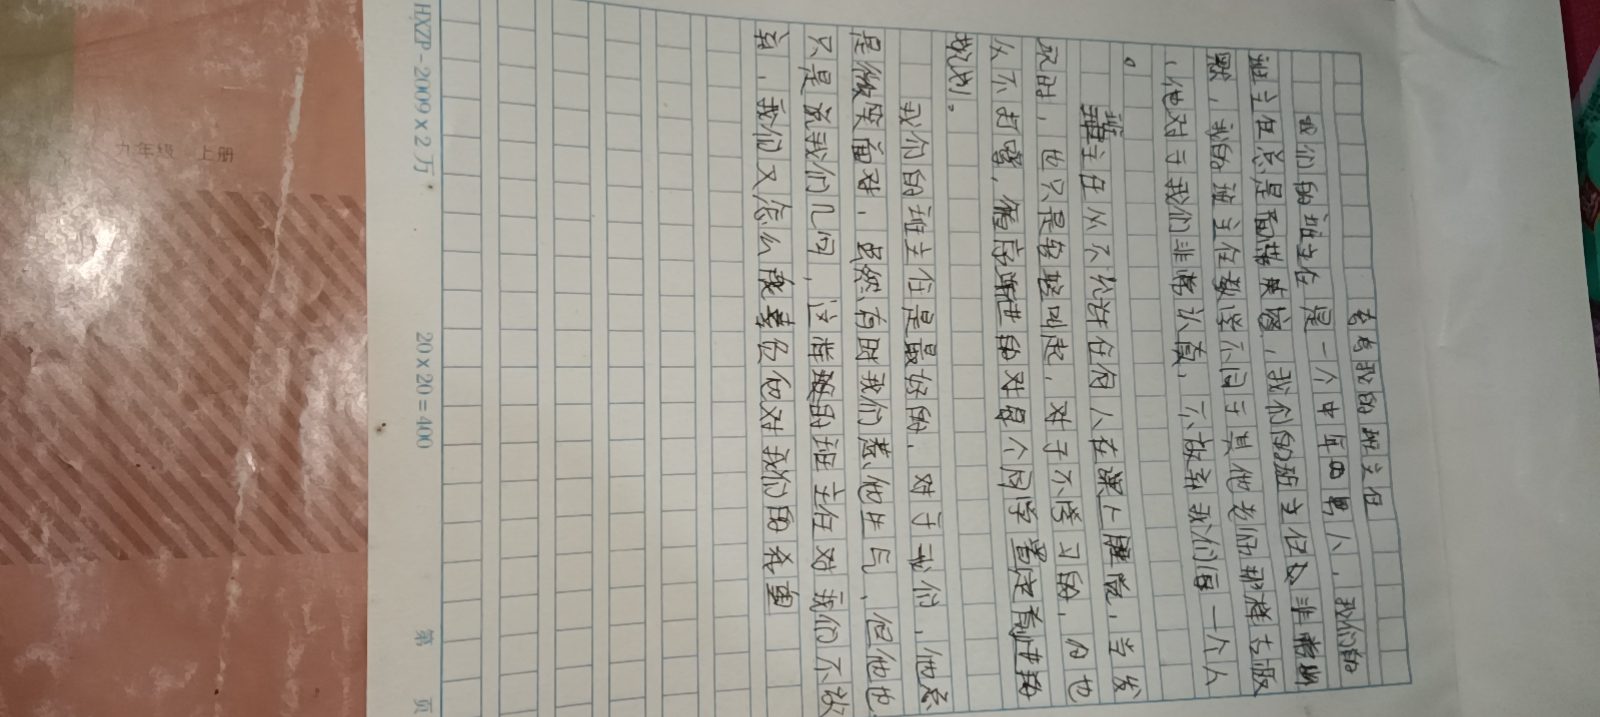 我的班主任
我们的班主任是一个中年男人，我们的
班主任总是面带笑容，我们的班主任又非常幽
默，我的班主任教学不同于其他老师那样古板
，他对于我们非常认真，不放弃我们每一个人
。
班主任从不允许任何人在课上睡觉，当发
现时，也只是轻轻叫起，对于不学习的，他也
从不打骂，
我们的班主任是最好的，对于我们，他总
是微笑面对，虽然有时我们惹他生气，但他也
只是说我们几句，这样好的班主任对我们不放
弃，我们又怎么能辜负他对我们的希望
HXZP-2009×2万
20×20=400
第 页
九年级 上册